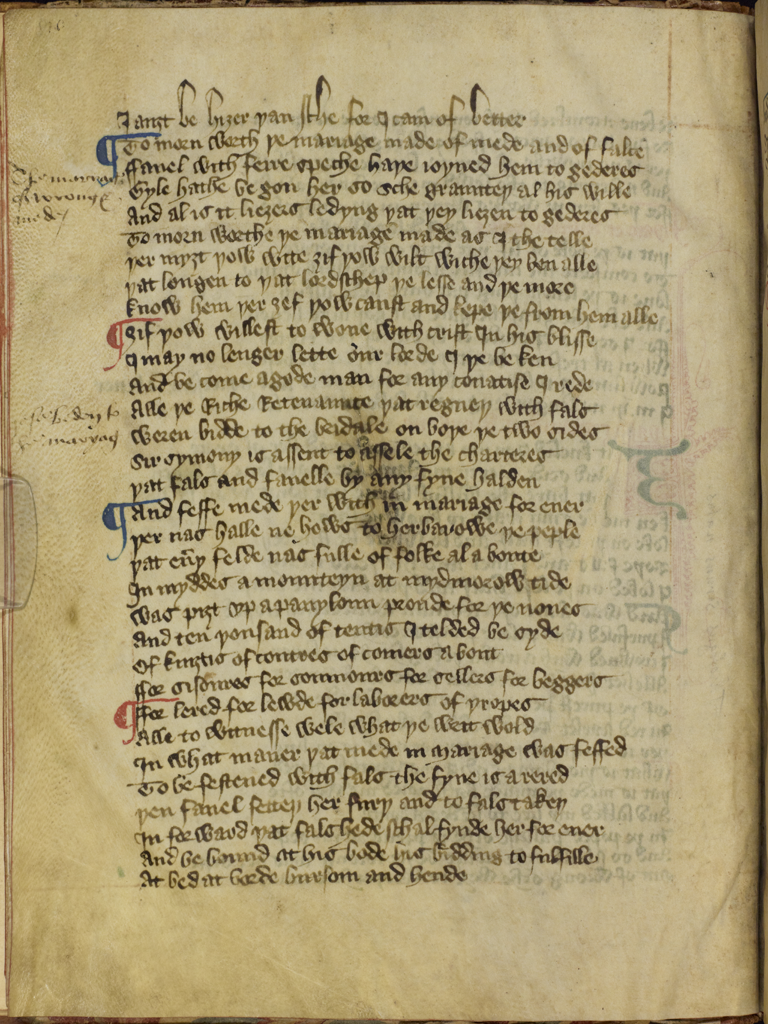 I auȝt be hiȝer þan sche for I cam of better
To morn worth þe mariage made of mede and of falce
ffauel with feire speche haþe ioyned hem to gederes
Gyle hathe be gon her so sche graunteþ al his wille
And al is it lieȝers ledyng þat þey lieȝen to gederes
To morn worthe þe mariage made as I the telle
þer myȝt þow wite ȝif þow wilt wiche þey ben alle
þat longen to þat lordschep þe lesse and þe more
know hem þer ȝef þow canst and kepe þe from hem alle
ȝif þow willest to wone with crist In his blisse
I may no lenger lette our lorde I þe be ken
And be come a gode man for any couatise I rede
Alle þe Riche Retenaunce þat regneþ with fals
weren bidde to the bridale on boþe þe two sides
Sir symony is assent to assele the charteres
þat fals and fauelle by any fyne halden
And feffe mede þer with in mariage for euer
þer nas halle ne hows to herbarowe þe peple
þat eu̾y felde nas fulle of folke al a boute
In myddes a mounteyn at mydmorow tide
was piȝt vp a panyloun proude for þe nones
And ten þousand of tentis I telded be syde
Of kniȝtis of contres of comers a bout
ffor sisoures for somnours for sellers for beggers
ffor lered for lewde for laborers of þropes
Alle to witnesse wele what þe writ wold
In what maner þat mede in mariage was feffed
To be festened with fals the fyne is a rered
þen fauel fetteþ her furþ and to fals takeþ
In for ward þat falshede schal fynde her for euer
And be bound at his bode his bidding to fulfille
At bed at borde bursom and hende